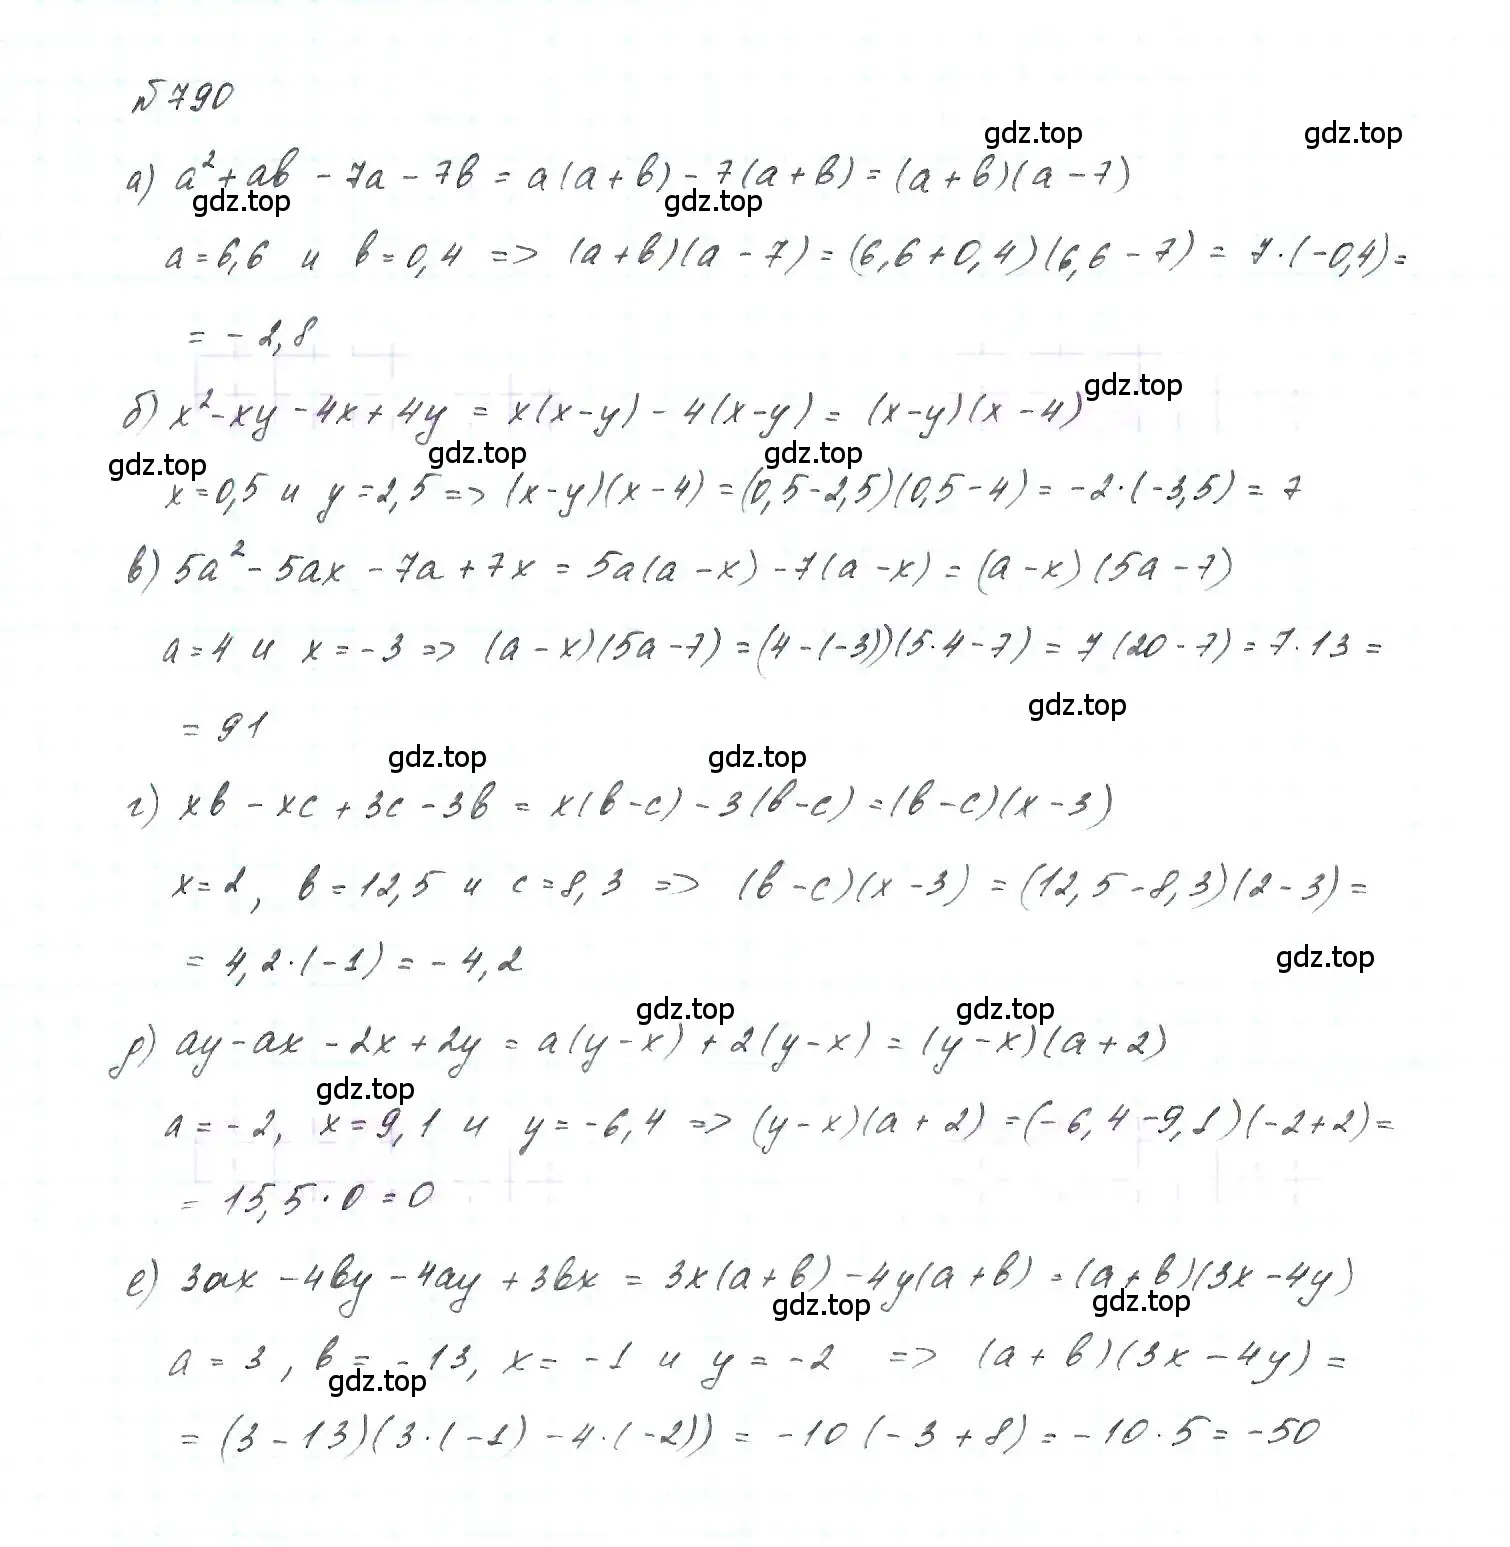 №790
gdz.top gdz.top
а) a² + ab - 7a - 7b = a(a + b) - 7(a + b) = (a + b)(a - 7)
gdz.top gdz.top
a = 6,6 и b = 0,4 => (a + b)(a - 7) = (6,6 + 0,4)(6,6 - 7) = 7·(-0,4) =
= - 2,8
gdz.top
б) x² - xy - 4x + 4y = x(x - y) - 4(x - y) = (x - y)(x - 4)
gdz.top gdz.top gdz.top
x = 0,5 и y = 2,5 => (x - y)(x - 4) = (0,5 - 2,5)(0,5 - 4) = -2·(-3,5) = 7
в) 5a² - 5ax - 7a + 7x = 5a(a - x) - 7(a - x) = (a - x)(5a - 7)
a = 4 и x = -3 => (a - x)(5a - 7) = (4 - (-3))(5·4 - 7) = 7(20 - 7) = 7·13 =
gdz.top
= 91
gdz.top gdz.top
г) xb - xc + 3c - 3b = x(b - c) - 3(b - c) = (b - c)(x - 3)
x = 2, b = 12,5 и c = 8,3 => (b - c)(x - 3) = (12,5 - 8,3)(2 - 3) =
= 4,2·(-1) = - 4,2
gdz.top
gdz.top gdz.top
д) ay - ax - 2x + 2y = a(y - x) + 2(y - x) = (y - x)(a + 2)
gdz.top
a = -2, x = 9,1 и y = -6,4 => (y - x)(a + 2) = (-6,4 - 9,1)(-2 + 2) =
= 15,5·0 = 0
е) 3ax - 4by - 4ay + 3bx = 3x(a + b) - 4y(a + b) = (a + b)(3x - 4y)
gdz.top gdz.top
a = 3, b = -13, x = -1 и y = -2 => (a + b)(3x - 4y) =
gdz.top
= (3 - 13)(3·(-1) - 4·(-2)) = -10(-3 + 8) = -10·5 = -50